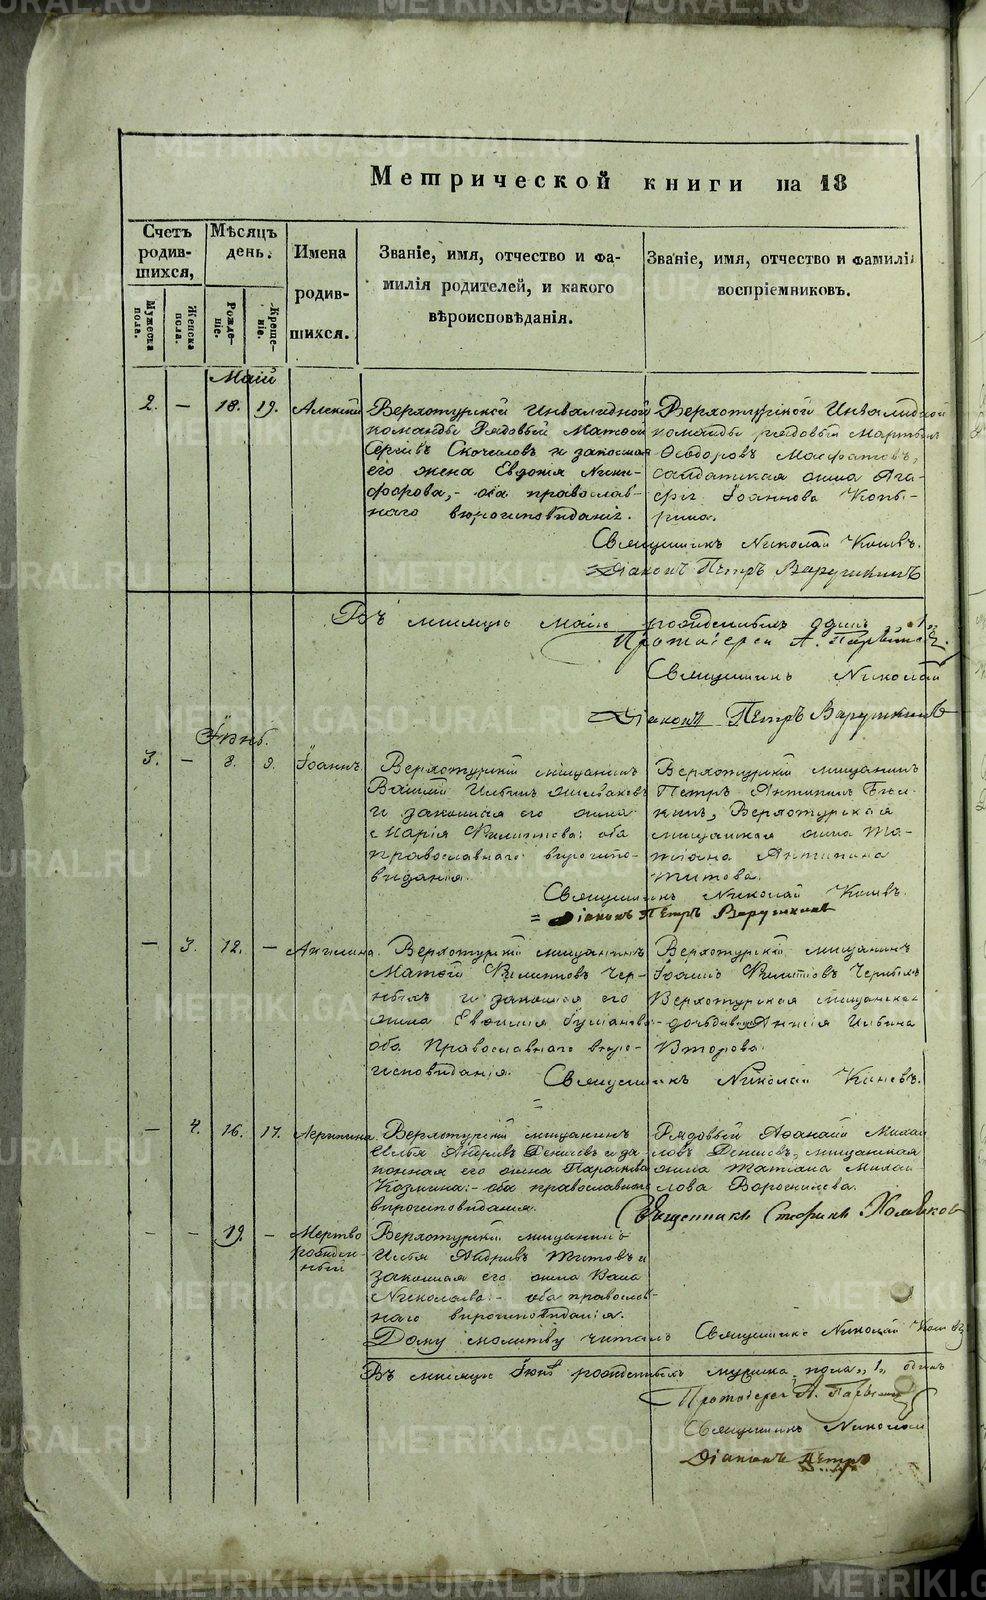 Метрической книги на 18
Счетъ родив-шихся,
Мужеска пола.
Женска пола.
Мѣсяцъ день.
Рожде-ніе.
Креще-ніе.
Имена родив-шихся.
Званіе, имя, отчество и фа-
милія родителей, и какого
вѣроисповѣданія.
Званіе, имя, отчество и фамилі
воспріемниковъ.
Маій
2. — 18. 19. Алексій
Верхотурской Инвалидной
команды Рядовый Матѳей
Сергіевъ и законная
его жена Евдокія Ники-
форова, - оба православ-
наго вѣроисповѣданія.
Верхотурской Инвалидной
команды рядовый Мартынъ
Ѳеодоровъ
солдатская жена Ага-
фья Іоаннова
Священникъ Николай
Діаконъ Петръ
Въ мѣсяцѣ маіѣ родившихся одинъ 1
Протоіерей А.
Священникъ Николай
Діаконъ Петръ
Іюнь.
3. — 8. 9. Іоаннъ.
Верхотурскій мѣщанинъ
Василій Ильинъ
и законная его жена
Марія Филиппова: оба
православнаго вѣроиспо-
вѣданія.
Верхотурскій мѣщанинъ
Петръ Антипинъ
Верхотурская
мѣщанская жена Та-
тіана Антипина
Титова.
Священникъ Николай
= Діаконъ Петръ
— 3. 12. — Акилина.
Верхотурскій мѣщанинъ
Матѳей Филипповъ Чер-
ныхъ и законная его
жена Евѳимія
оба Православнаго вѣро-
исповѣданія.
Верхотурскій мѣщанинъ
Іоаннъ Филипповъ Черныхъ
Верхотурская мѣщанская
Ильина
Второва.
Священникъ Николай
— 4. 16. 17. Агрипина.
Верхотурскій мѣщанинъ
Илья Андреевъ и за-
конная его жена Параскева
Козмина: - оба православнаго
вѣроисповѣданія.
Рядовый Аѳанасій Михай
ловъ мѣщанская
жена Татіана Михаи-
лова
Священникъ
— — 19. — Мертво
рожден-
ный
Верхотурскій мѣщанинъ
Илья Андреевъ Титовъ и
законная его жена
Николаева: - оба православ-
наго вѣроисповѣданія.
молитву читалъ Священникъ Николай
Въ мѣсяцѣ Іюнѣ родившихся мужеска пола „1„ одинъ
Протоіерей А.
Священникъ Николай
Діаконъ Петръ
METRIKI.GASO-URAL.RU